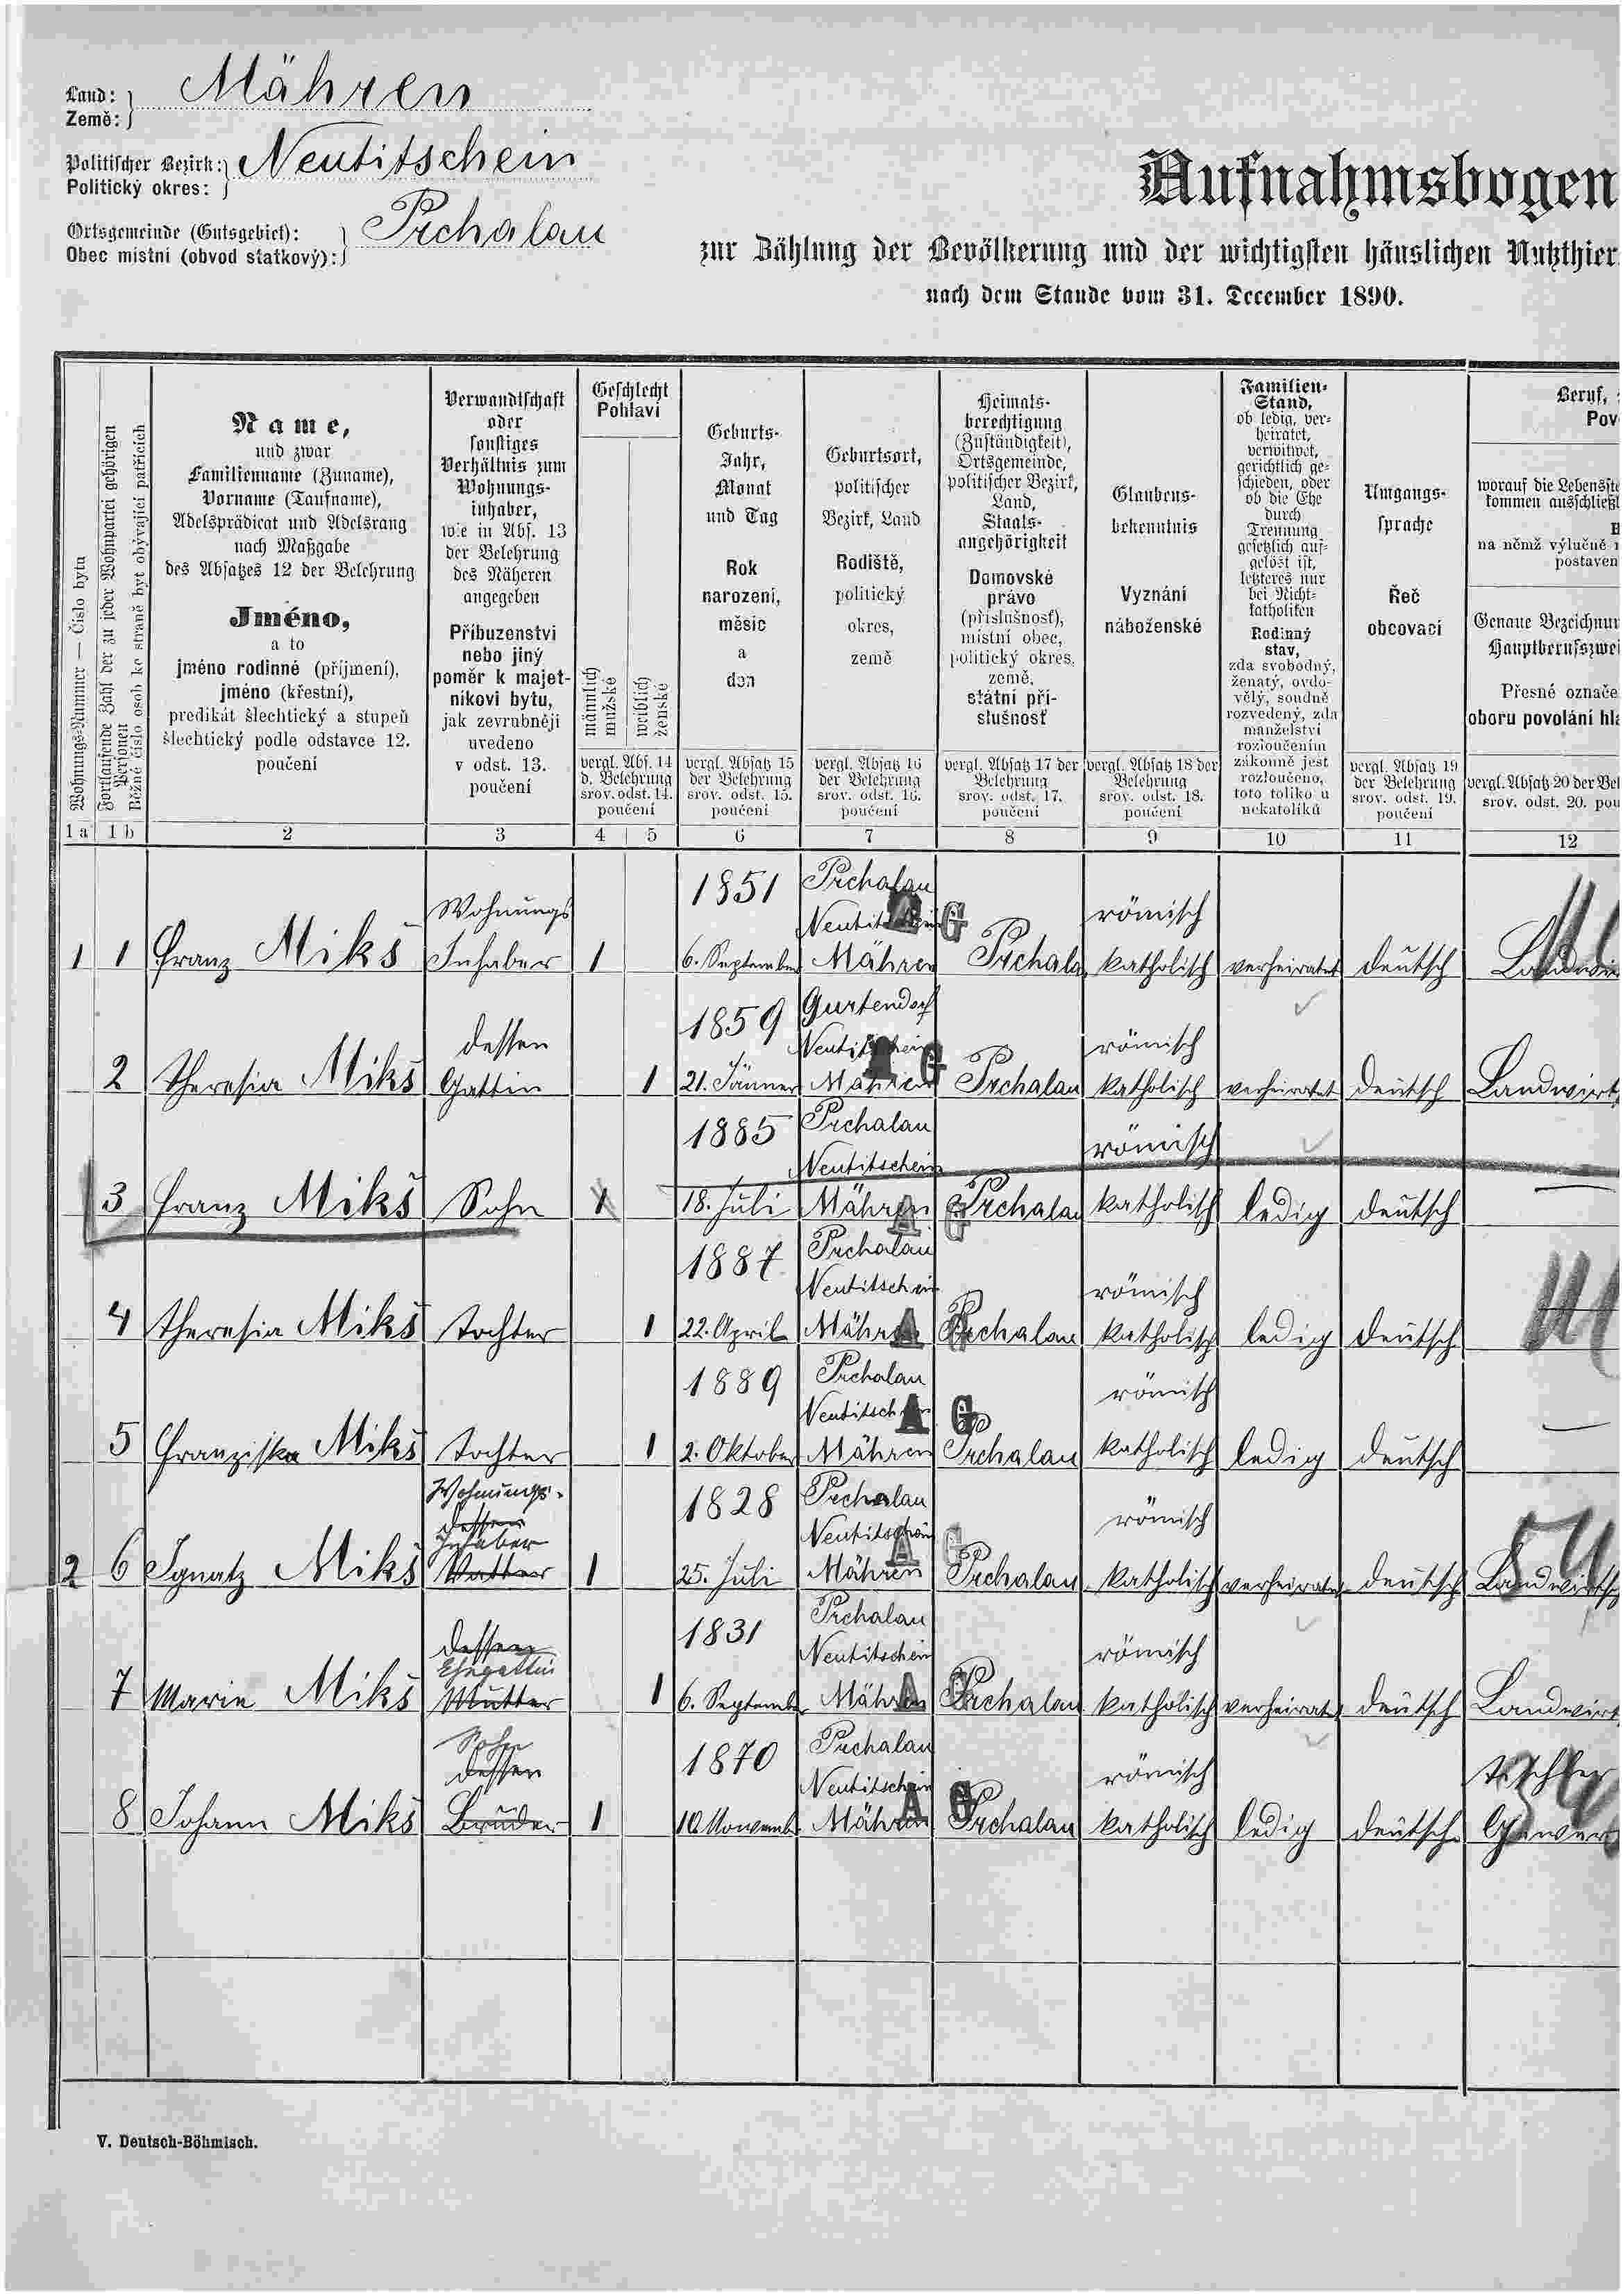 Land:
Země:
Mähren
Politischer Bezirk:
Politický okres:
Neutitschein
Ortsgemeinde (Gutsgebiet):
Obec místní (obvod statkový):
Prchalau
Aufnahmsbogen
zur Zählung der Bevölkerung und der wichtigsten häuslichen Nutzthier
nach dem Stande vom 31. December 1890.
Wohnungs-Nummer — Číslo bytu
Fortlaufende Zahl der zu jeder Wohnpartei gehörigen
Personen
Běžné číslo osob ke straně byt obývající patřících
Name,
und zwar
Familienname (Zuname),
Vorname (Taufname),
Adelsprädicat und Adelsrang
nach Maßgabe
des Absatzes 12 der Belehrung
Jméno,
a to
jméno rodinné (příjmení),
jméno (křestní),
predikát šlechtický a stupeň
šlechtický podle odstavce 12.
poučení
Verwandtschaft
oder
sonstiges
Verhältnis zum
Wohnungs-
inhaber,
wie in Abs. 13
der Belehrung
des Näheren
angegeben
Příbuzenství
nebo jiný
poměr k majet-
níkovi bytu,
jak zevrubněji
uvedeno
v odst. 13.
poučení
Geschlecht
Pohlaví
männlich
mužské
weiblich
ženské
vergl. Abs. 14
d. Belehrung
srov. odst. 14.
poučení
Geburts-
Jahr,
Monat
und Tag
Rok
narození,
měsíc
a
den
vergl. Absatz 15
der Belehrung
srov. odst. 15.
poučení
Geburtsort,
politischer
Bezirk, Land
Rodiště,
politický
okres,
země
vergl. Absatz 16
der Belehrung
srov. odst. 16.
poučení
Heimats-
berechtigung
(Zuständigkeit),
Ortsgemeinde,
politischer Bezirk,
Land,
Staats-
angehörigkeit
Domovské
právo
(příslušnosť),
místní obec,
politický okres,
země,
státní pří-
slušnosť
vergl. Absatz 17 der
Belehrung
srov. odst. 17.
poučení
Glaubens-
bekenntnis
Vyznání
náboženské
vergl. Absatz 18 der
Belehrung
srov. odst. 18.
poučení
Familien-
Stand,
ob ledig, ver-
heiratet,
verwitwet,
gerichtlich ge-
schieden, oder
ob die Ehe
durch
Trennung
gesetzlich auf-
gelöst ist,
letzteres nur
bei Nicht-
katholiken
Rodinný
stav,
zda svobodný,
ženatý, ovdo-
vělý, soudně
rozvedený, zda
manželství
rozloučením
zákonně jest
rozloučeno,
toto toliko u
nekatolíků
Umgangs-
sprache
Řeč
obcovací
vergl. Absatz 19
der Belehrung
srov. odst. 19.
poučení
Beruf,
Pov
worauf die Lebensste
kommen ausschließl
na němž výlučně
postaven
Genaue Bezeichnun
Hauptberufszwei
Přesné označe
oboru povolání hla
vergl. Absatz 20 der Bel
srov. odst. 20. pou
1 a 1 b 2 3 4 5 6 7 8 9 10 11 12
1851 Prchalau
Wohnungs Neutitschein G römisch
1 1 Franz Mikš Inhaber 1 6. September Mähren Prchala katholisch verheiratet deutsch
1859 Gurtendorf
dessen Neutitschein G römisch
2 Theresia Mikš Gattin 1 21. Jänner Mähren Prchalau katholisch verheiratet deutsch Landwirt
1885 Prchalau römisch
Neutitschein
3 Franz Mikš Sohn 1 18. Juli Mähren A G Prchalau katholisch ledig deutsch
1887 Prchalau
Neutitschein römisch
4 Theresia Mikš Tochter 1 22. April Mähren A Prchalau katholisch ledig deutsch
1889 Prchalau römisch
Neutitschein A G
5 Franziska Mikš Tochter 1 2. Oktober Mähren Prchalau katholisch ledig deutsch
Wohnungs- 1828 Prchalau römisch
dessen Neutitschein
Inhaber A G
2 6 Ignatz Mikš Vatter 1 25. Juli Mähren Prchalau katholisch verheiratet deutsch Landwirtsch
1831 Prchalau
dessen Neutitschein römisch
Ehegattin
7 Marie Mikš Mutter 1 6. September Mähren A G Prchalau katholisch verheirat deutsch Landwirt
Sohn 1870 Prchalau
dessen Neutitschein römisch Tischler
8 Johann Mikš Bruder 1 10. Novemb. Mähren A G Prchalau katholisch ledig deutsch Gewer
V. Deutsch-Böhmisch.